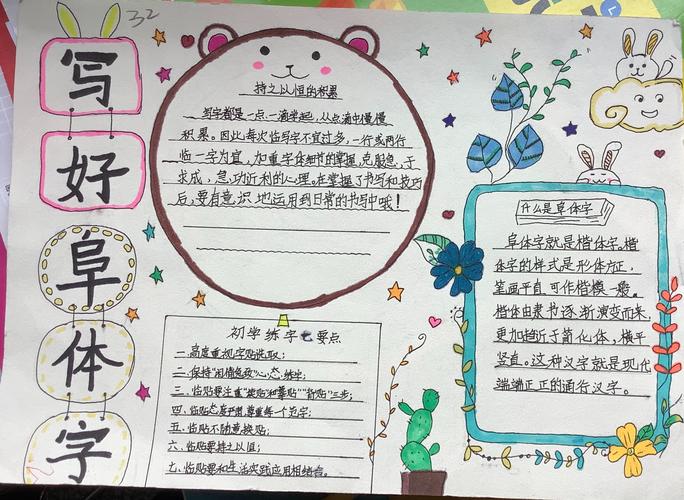 32
写好阜体字
持之以恒的积累
写字都是一点一滴坐起,从点滴中慢慢
积累。因此,每次临写字不宜过多,一行或两行
临一字为宜,加重字体细节的掌握,克服急于
求成,急功近利的心理。在掌握了书写和技巧
后,要有意识地运用到日常的书写中哦!
初学练字七要点
一.高度重视字贴选取;
二.保持"闲情逸致"心态练字;
三.临贴要注重"读贴"和摹贴""背贴"三步;
四.临贴态度严肃,尊重每个范字;
五.临贴不随意换贴;
六.临贴要持之以恒;
七.临贴要和生活实践应用相结合。
什么是阜体字
阜体字就是楷体字,楷
体字的样式是形体方正,
笔画平直,可作楷模一般。
楷体由隶书逐渐演变而来,
更加趋于简化体,横平
竖直。这种汉字就是现代
端端正正的通行汉字。